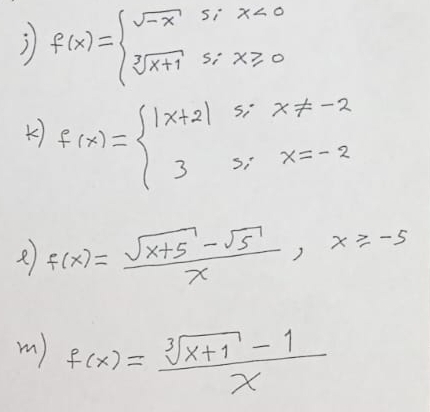 j) f(x) = { √-x si x < 0
∛x+1 si x ≥ 0
k) f(x) = { |x+2| si x ≠ -2
3 si x = -2
l) f(x) = (√x+5 - √5) / x , x ≥ -5
m) f(x) = (∛x+1 - 1) / x